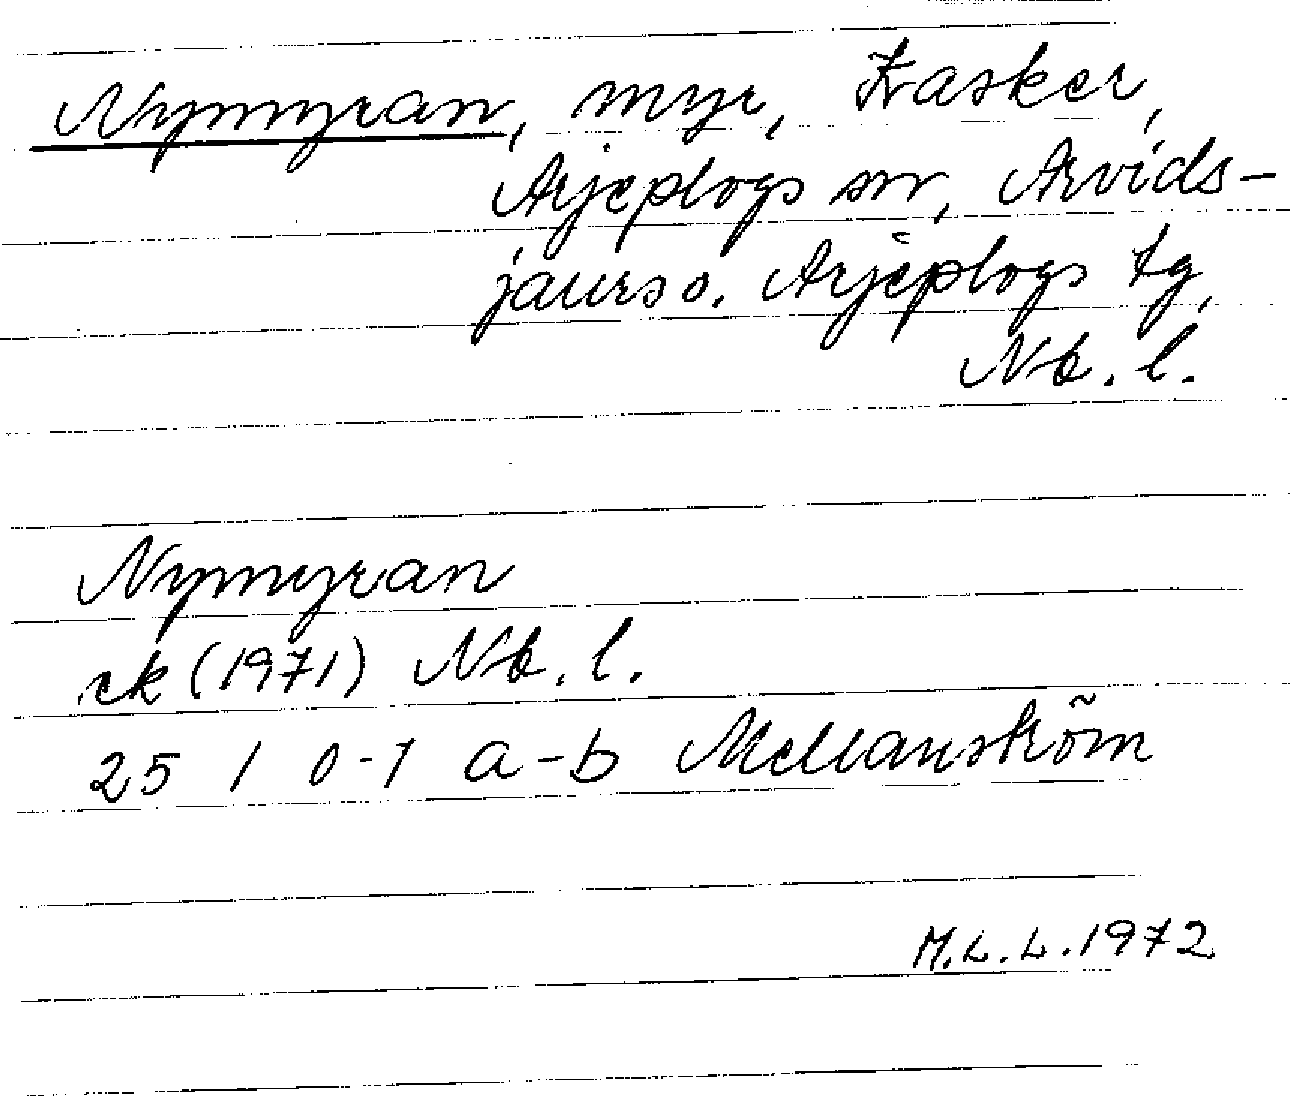 Nymyran, myr, Kasker,
Arjeplogs sn, Arvids-
jaurs o. Arjeplogs tg,
Nb. l.
Nymyran
ek (1971) Nb. l.
25 I 0-1 a-b Mellanström
M.L.L. 1972